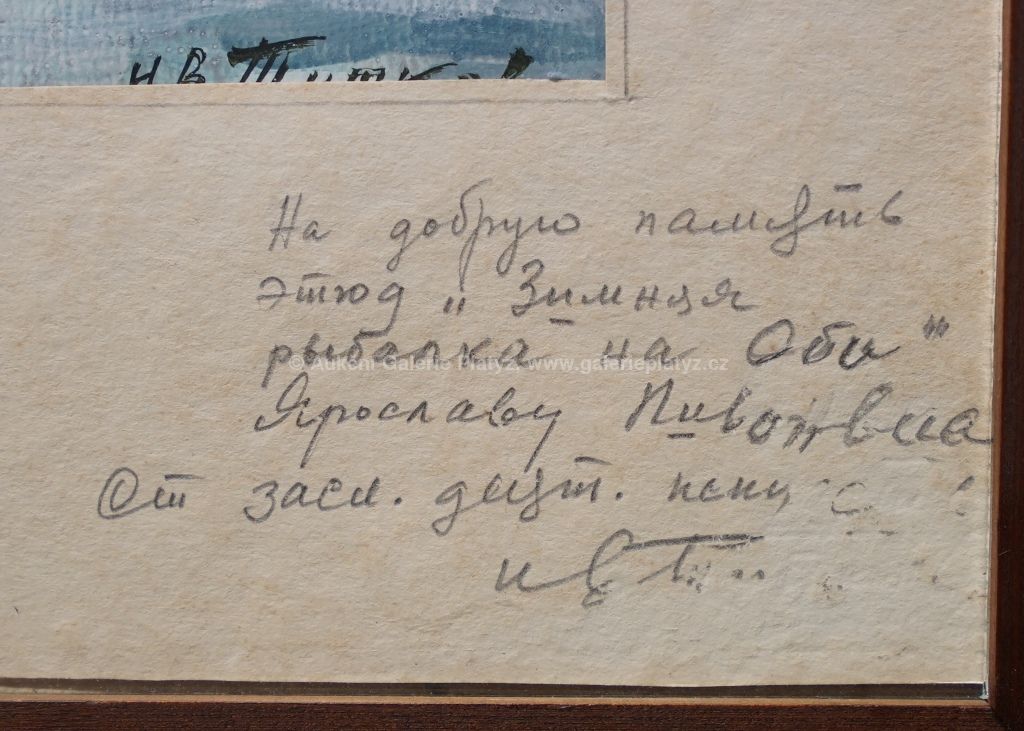 И.В. Титков
На добрую память
этюд „ Зимняя
рыбалка на Оби"
© Aukční Galerie Platýz, www.galerieplatyz.cz
Ярославу
От засл. деят. иску